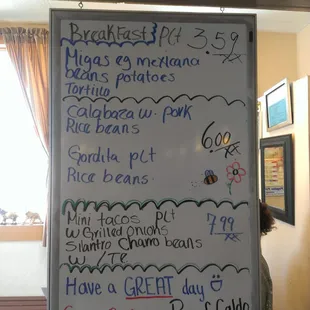 BreaKFasT PLT 3.59
Migas eg mexicana
beans potatoes
Tortilla
Calabaza w. pork
Rice beans
6.00
Gordita pLt
Rice beans
Mini tacos pLt 7.99
w Grilled onions
Silantro Charro beans
w / TR
Have a GREAT day